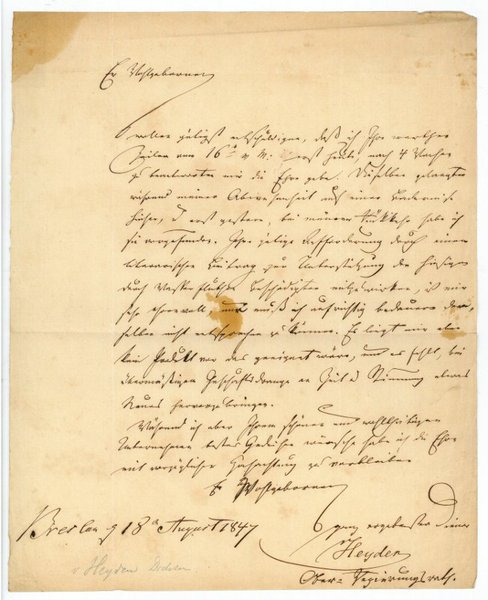 Ew Wohlgeboren
wollen gütigst entschuldigen, daß ich Ihre werthen
Zeilen vom 16t v M: erst heute, nach 4 Wochen
zu beantworten mir die Ehre gebe. Dieselben gelangten
während meiner Abwesenheit auf einer Badereise
hieher, u erst gestern, bei meiner Rückkehr habe ich
sie vorgefunden. Ihre gütige Aufforderung durch einen
literarischen Beitrag zur Unterstützung der hiesigen
durch Beschädigten mitzuwirken, ist mir
sehr ehrenvoll, und muß ich aufrichtig bedauern der-
selben nicht entsprechen zu können. Es liegt mir aber
kein Produkt vor das geeignet wäre, und es fehlt, bei
übermäßigem Geschäftsdrange an Zeit u Stimmung etwas
Neues hervorzubringen.
Während ich aber Ihrem schönen und wohlthätigen
Unternehmen bestes Gedeihen wünsche habe ich die Ehre
mit vorzüglicher Hochachtung zu verbleiben
Ew Wohlgeboren
Breslau d 18n August 1847
ganz ergebenster Diener
v Heyden
Ober-Regierungsrath.
v Heyden